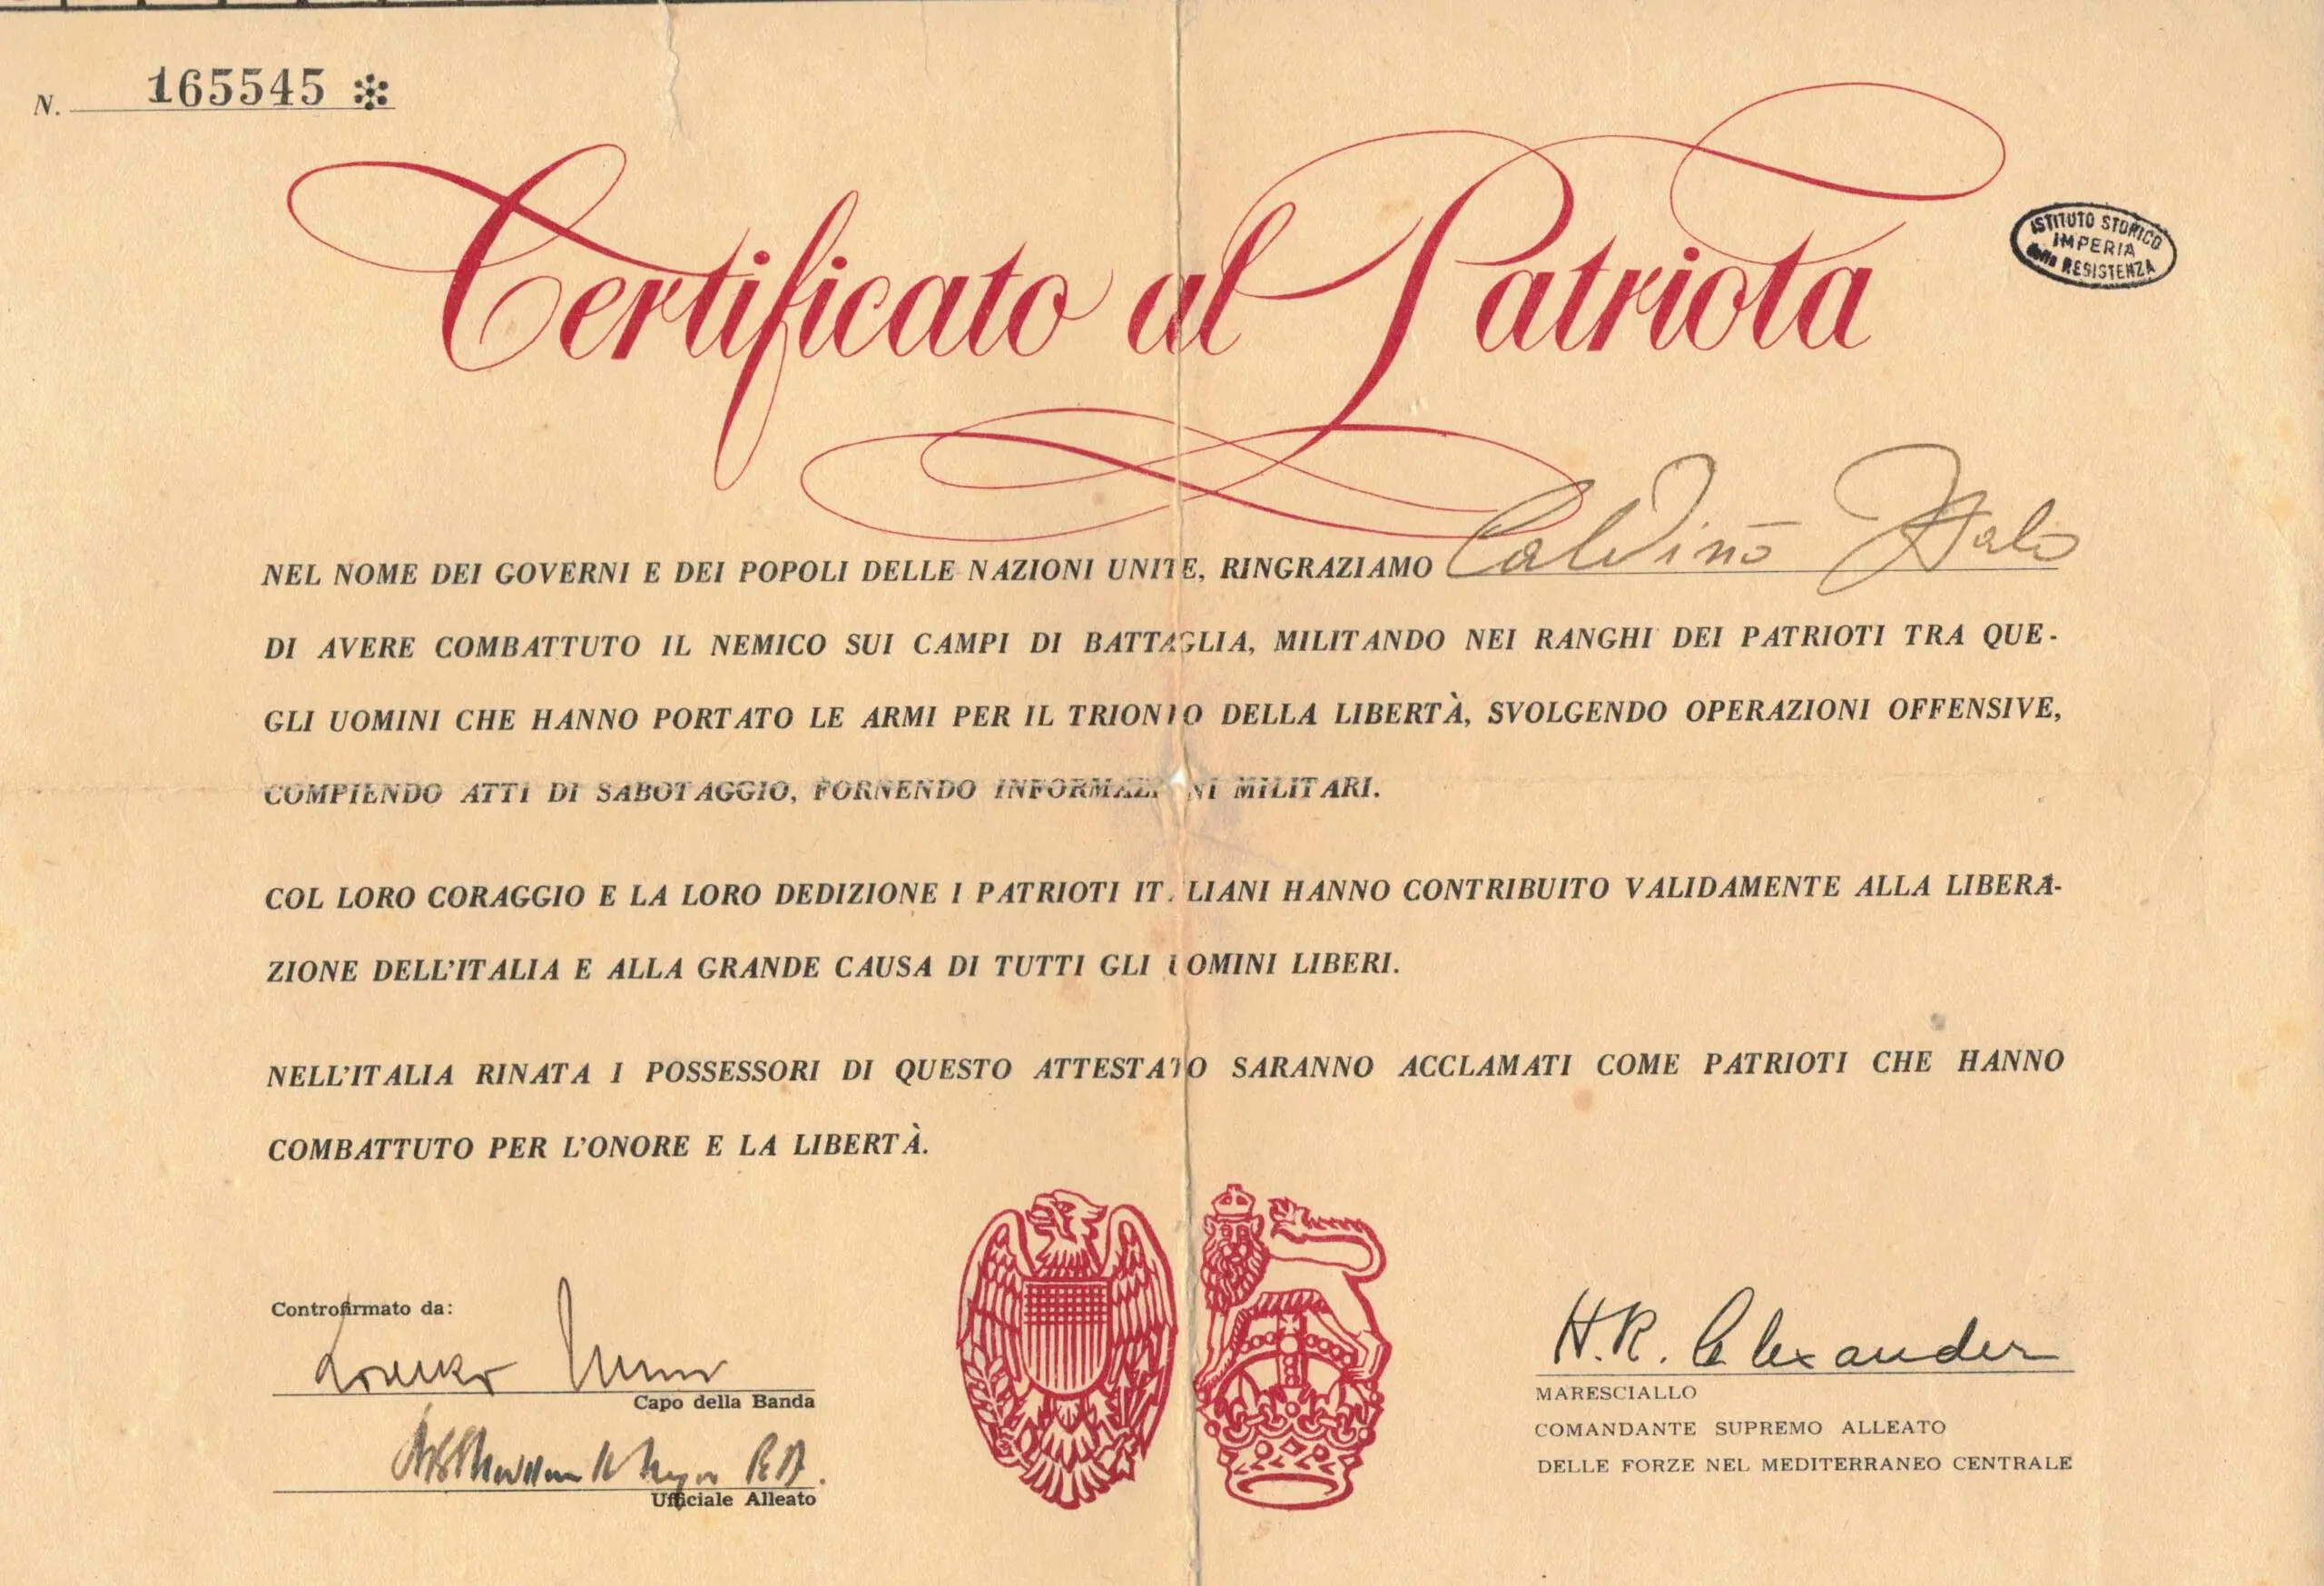 N. 165545 *
Certificato al Patriota
ISTITUTO STORICO
IMPERIA
della RESISTENZA
NEL NOME DEI GOVERNI E DEI POPOLI DELLE NAZIONI UNITE, RINGRAZIAMO Calvino Italo
DI AVERE COMBATTUTO IL NEMICO SUI CAMPI DI BATTAGLIA, MILITANDO NEI RANGHI DEI PATRIOTI TRA QUE-
GLI UOMINI CHE HANNO PORTATO LE ARMI PER IL TRIONFO DELLA LIBERTÀ, SVOLGENDO OPERAZIONI OFFENSIVE,
COMPIENDO ATTI DI SABOTAGGIO, FORNENDO INFORMAZIONI MILITARI.
COL LORO CORAGGIO E LA LORO DEDIZIONE I PATRIOTI ITALIANI HANNO CONTRIBUITO VALIDAMENTE ALLA LIBERA-
ZIONE DELL'ITALIA E ALLA GRANDE CAUSA DI TUTTI GLI UOMINI LIBERI.
NELL'ITALIA RINATA I POSSESSORI DI QUESTO ATTESTATO SARANNO ACCLAMATI COME PATRIOTI CHE HANNO
COMBATTUTO PER L'ONORE E LA LIBERTÀ.
Controfirmato da:
Capo della Banda
Ufficiale Alleato
H.R. Alexander
MARESCIALLO
COMANDANTE SUPREMO ALLEATO
DELLE FORZE NEL MEDITERRANEO CENTRALE